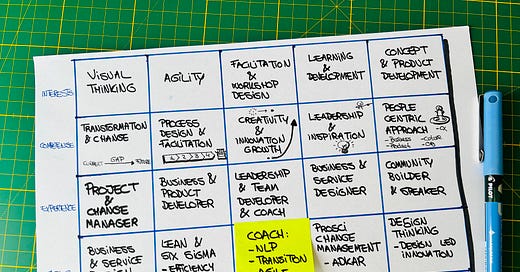 INTERESTS
VISUAL
THINKING
AGILITY
FACILITATION
&
WORKSHOP
DESIGN
LEARNING
&
DEVELOPMENT
CONCEPT
& PRODUCT
DEVELOPMENT
TRANSFORMATION
& CHANGE
GAP
PROCESS
DESIGN &
FACILITATION
CREATIVITY
&
INNOVATION
GROWTH
LEADERSHIP
&
INSPIRATION
PEOPLE
CENTRIC
APPROACH
EXPERIENCE
PROJECT
&
CHANGE
MANAGER
BUSINESS &
PRODUCT
DEVELOPER
LEADERSHIP
& TEAM
DEVELOPER
& COACH
BUSINESS &
SERVICE
DESIGNER
COMMUNITY
BUILDER
& SPEAKER
BUSINESS
& SERVICE
LEAN &
SIX SIGMA
- EFFICIENCY
COACH:
- NLP
- TRANSITION
PROSCI
CHANGE
MANAGEMENT
- ADKAR
DESIGN
THINKING
- DESIGN LED
INNOVATION
PILOT